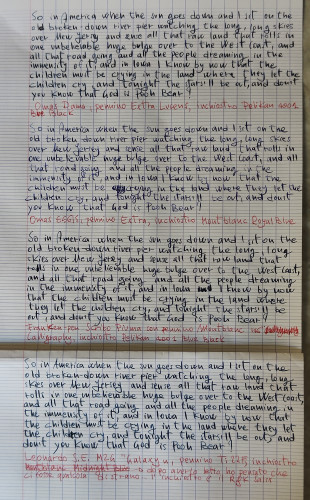 So in America when the sun goes down and I sit on the
old broken-down river pier watching the long, long skies
over New Jersey and sense all that raw land that rolls in
one unbelievable huge bulge over to the West Coast, and
all that road going and all the people dreaming in the
immensity of it and in Iowa I know by now that the
children must be crying in the land where they let the
children cry, and tonight the stars'll be out, and don't
you know that God is Pooh Bear?
Omas Dama, pennino Extra Lucens, inchiostro Pelikan 4001
Black
So in America when the sun goes down and I sit on the
old broken-down river pier watching the long, long skies
over New Jersey and sense all that raw land that rolls in
one unbelievable huge bulge over to the West Coast, and all
that road going, and all the people dreaming in the
immensity of it, and in Iowa I know by now that the
children must be crying in the land where they let the
children cry, and tonight the stars'll be out, and don't
you know that God is Pooh Bear?
Omas Bronze, pennino Extra, inchiostro Mont blanc Royal Blue
So in America when the sun goes down and I sit on the
old broken-down river pier watching the long, long
skies over New Jersey and sense all that raw land that
rolls in one unbelievable huge bulge over to the West Coast,
and all that road going, and all the people dreaming
in the immensity of it, and in Iowa I know by now
that the children must be crying in the land where
they let the children cry, and tonight the stars'll be
out, and don't you know that God is Pooh Bear?
Calligraphy, inchiostro Pelikan 4001 blue black
So in America when the sun goes down and I sit on the
old broken-down river pier watching the long, long
skies over New Jersey and sense all that raw land that
rolls in one unbelievable huge bulge over to the West Coast,
and all that road going, and all the people dreaming in
the immensity of it, and in Iowa I know by now that
the children must be crying in the land where they let
the children cry, and tonight the stars'll be out, and
don't you know that God is Pooh Bear?
Leonardo pennino inchiostro